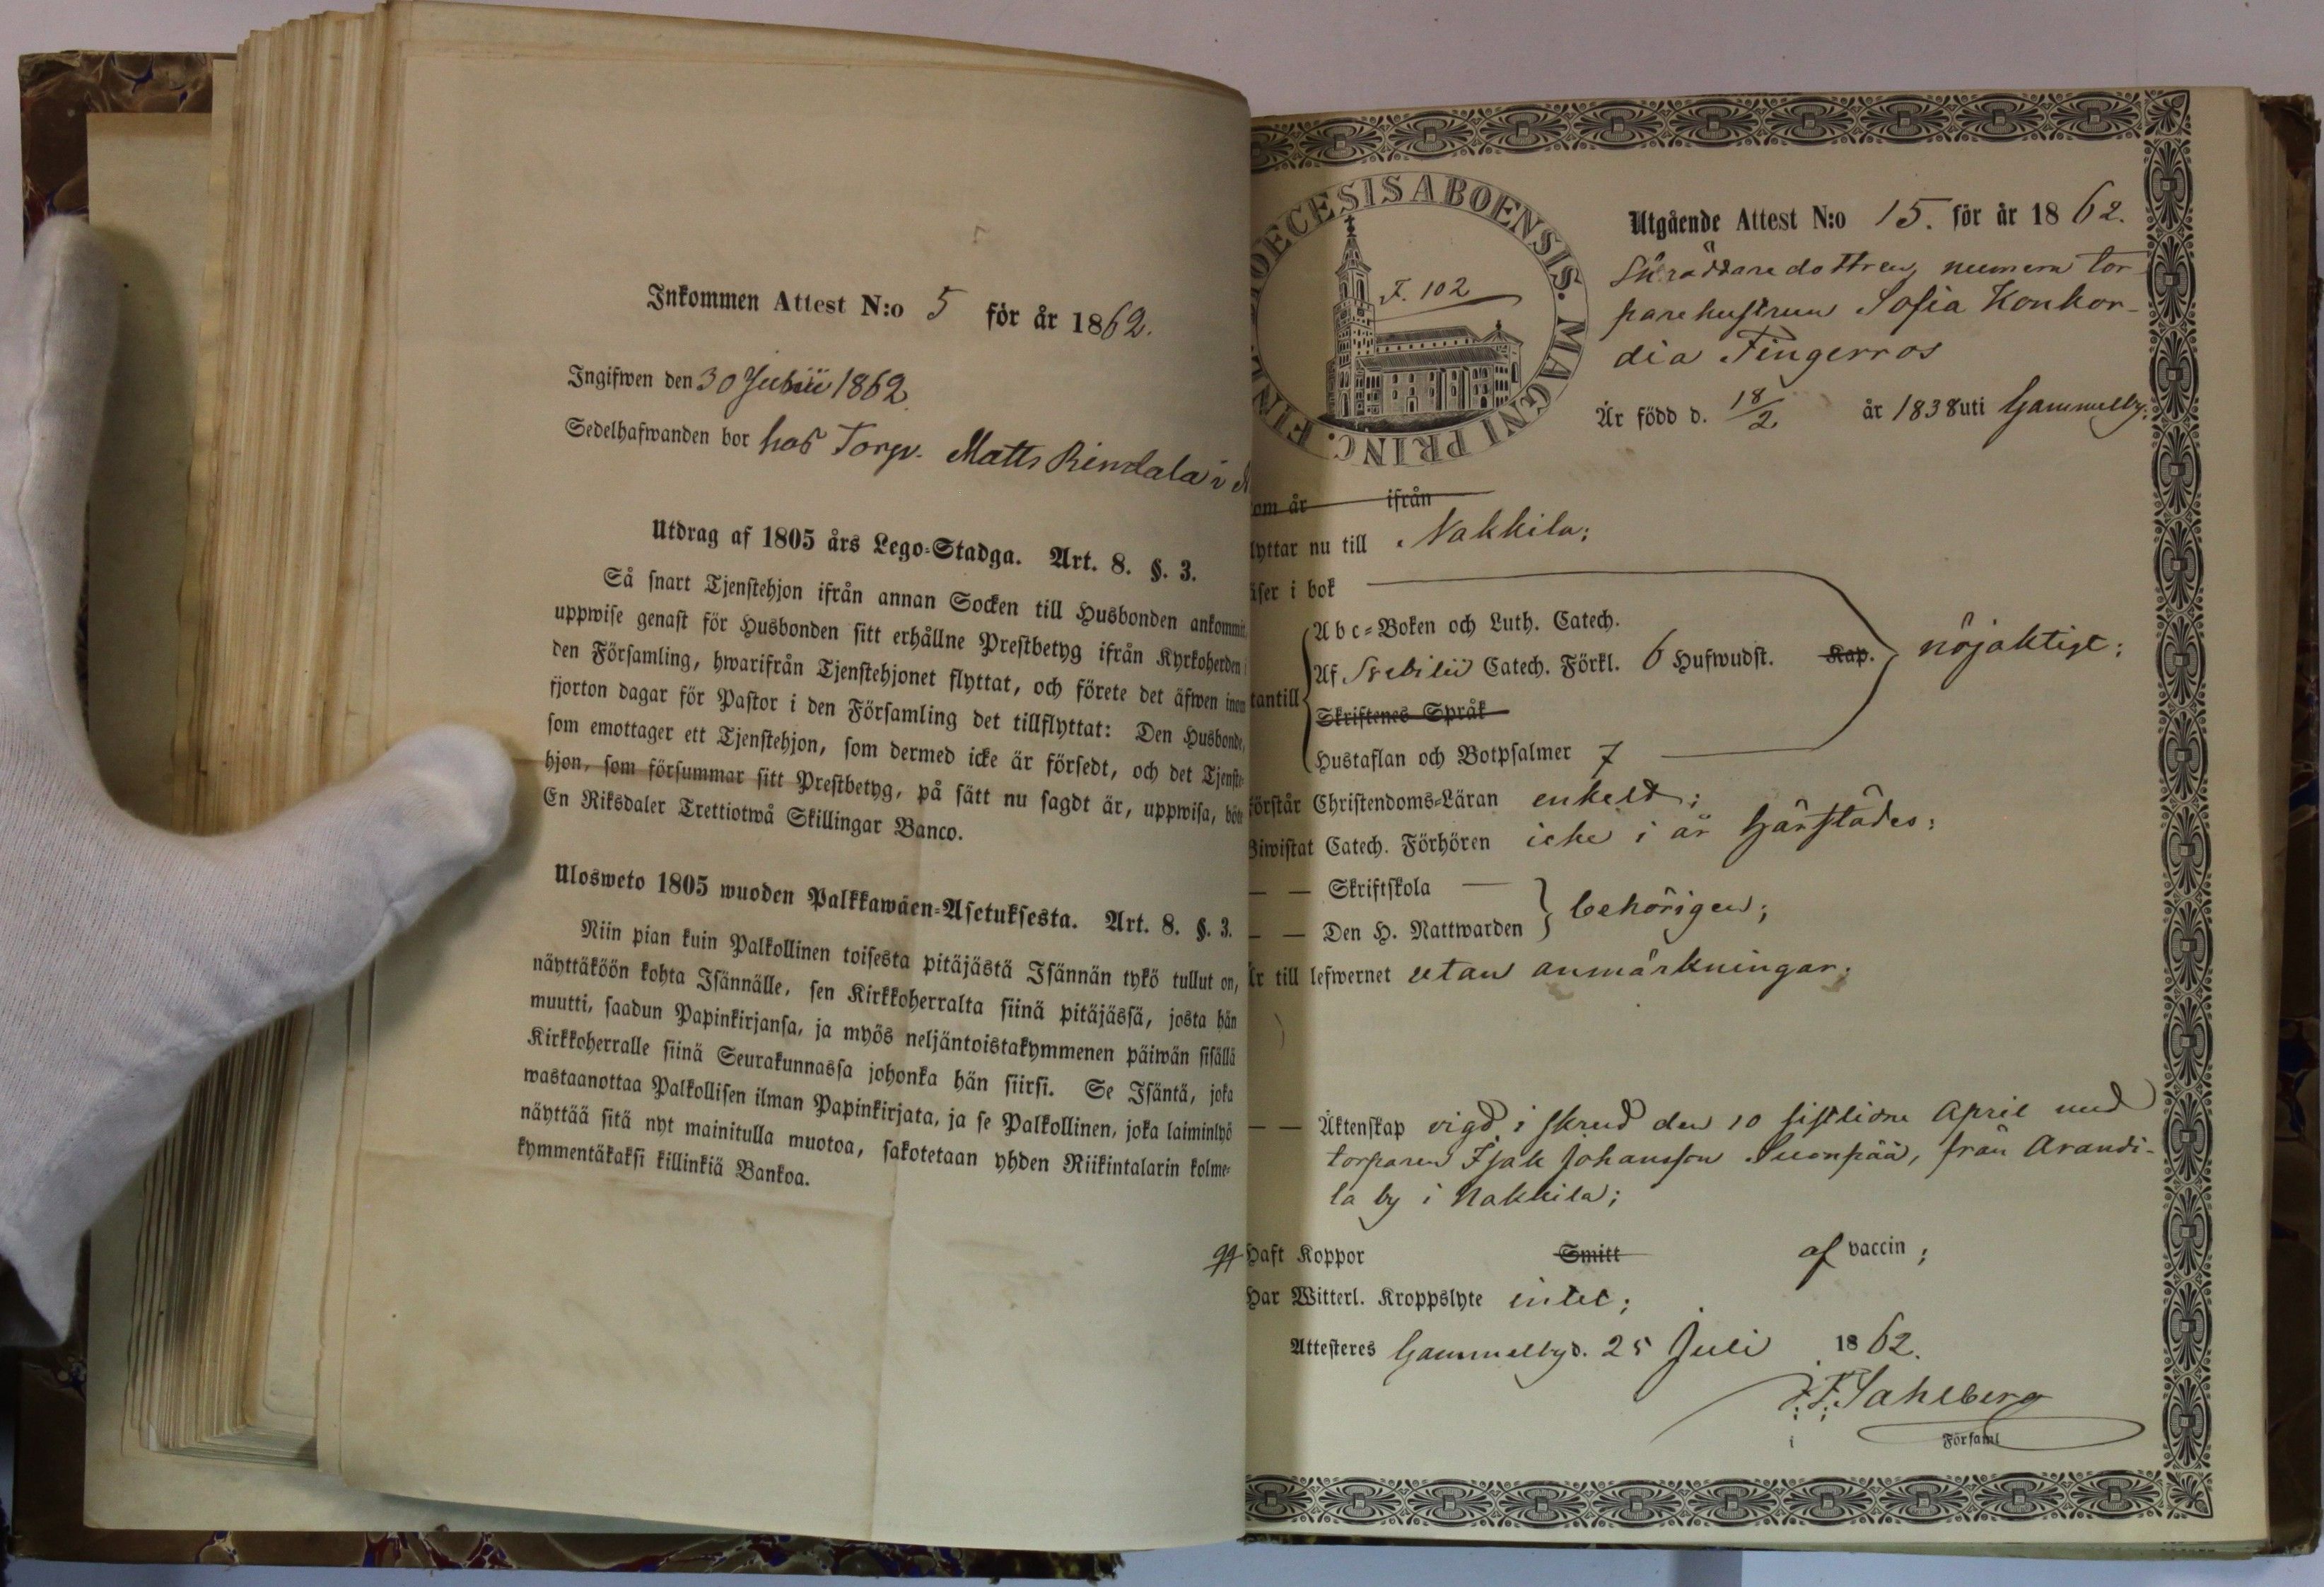 Inkommen Attest N:o 5 för år 1862.
Ingifwen den 30 Julii 1862.
Sedelhafwanden bor hos Torp. Matts Rindala i
Utdrag af 1805 års Lego=Stadga. Art. 8. §. 3.
Så snart Tjenstehjon ifrån annan Socken till Husbonden ankommit,
uppwise genast för Husbonden sitt erhållne Prestbetyg ifrån Kyrkoherden i
den Församling, hwarifrån Tjenstehjonet flyttat, och förete det äfwen inom
fjorton dagar för Pastor i den Församling det tillflyttat: Den Husbonde,
som emottager ett Tjenstehjon, som dermed icke är försedt, och det Tjenste-
hjon, som försummar sitt Prestbetyg, på sätt nu sagdt är, uppwisa, böte
En Riksdaler Trettiotwå Skillingar Banco.
Ulosweto 1805 wuoden Palkkawäen=Asetuksesta. Art. 8. §. 3.
Niin pian kuin Palkollinen toisesta pitäjästä Isännän tykö tullut on,
näyttäköön kohta Isännälle, sen Kirkkoherralta siinä pitäjässä, josta hän
muutti, saadun Papinkirjansa, ja myös neljäntoistakymmenen päiwän sisällä
Kirkkoherralle siinä Seurakunnassa johonka hän siirsi. Se Isäntä, joka
wastaanottaa Palkollisen ilman Papinkirjata, ja se Palkollinen, joka laiminlyö
näyttää sitä nyt mainitulla muotoa, sakotetaan yhden Riikintalarin kolme-
kymmentäkaksi killinkiä Bankoa.
OECESIS ABOENSIS. MAGNI PRINC. FINL
F. 102
Utgående Attest N:o 15. för år 1862.
Skräddaredottren, numera tor-
parehustrun Sofia Konkor-
dia Fingerroos
Är född d. 18/2 år 1838 uti Gammelby;
om år ifrån
lyttar nu till Nakkila;
äser i bok
Abc=Boken och Luth. Catech.
Af Svebilii Catech. Förkl. 6 Hufwudst. Kap. nöjaktigt;
tantill
Skriftenes Språk
Hustaflan och Botpsalmer 7
förstår Christendoms=Läran enkelt;
Biwistat Catech. Förhören icke i år härstädes;
— — Skriftskola —
— — Den H. Nattwarden behörigen;
Är till lefwernet utan anmärkningar;
— — Äktenskap vigd i skrud den 10 sistlidne April med
torparen Isak Johansson Suonpää, från Arandi-
la by i Nakkila;
Haft Koppor Smitt af vaccin;
Har Witterl. Kroppslyte intet;
Attesteres Gammelby d. 25 Juli 1862.
F. Sahlberg
i Församl